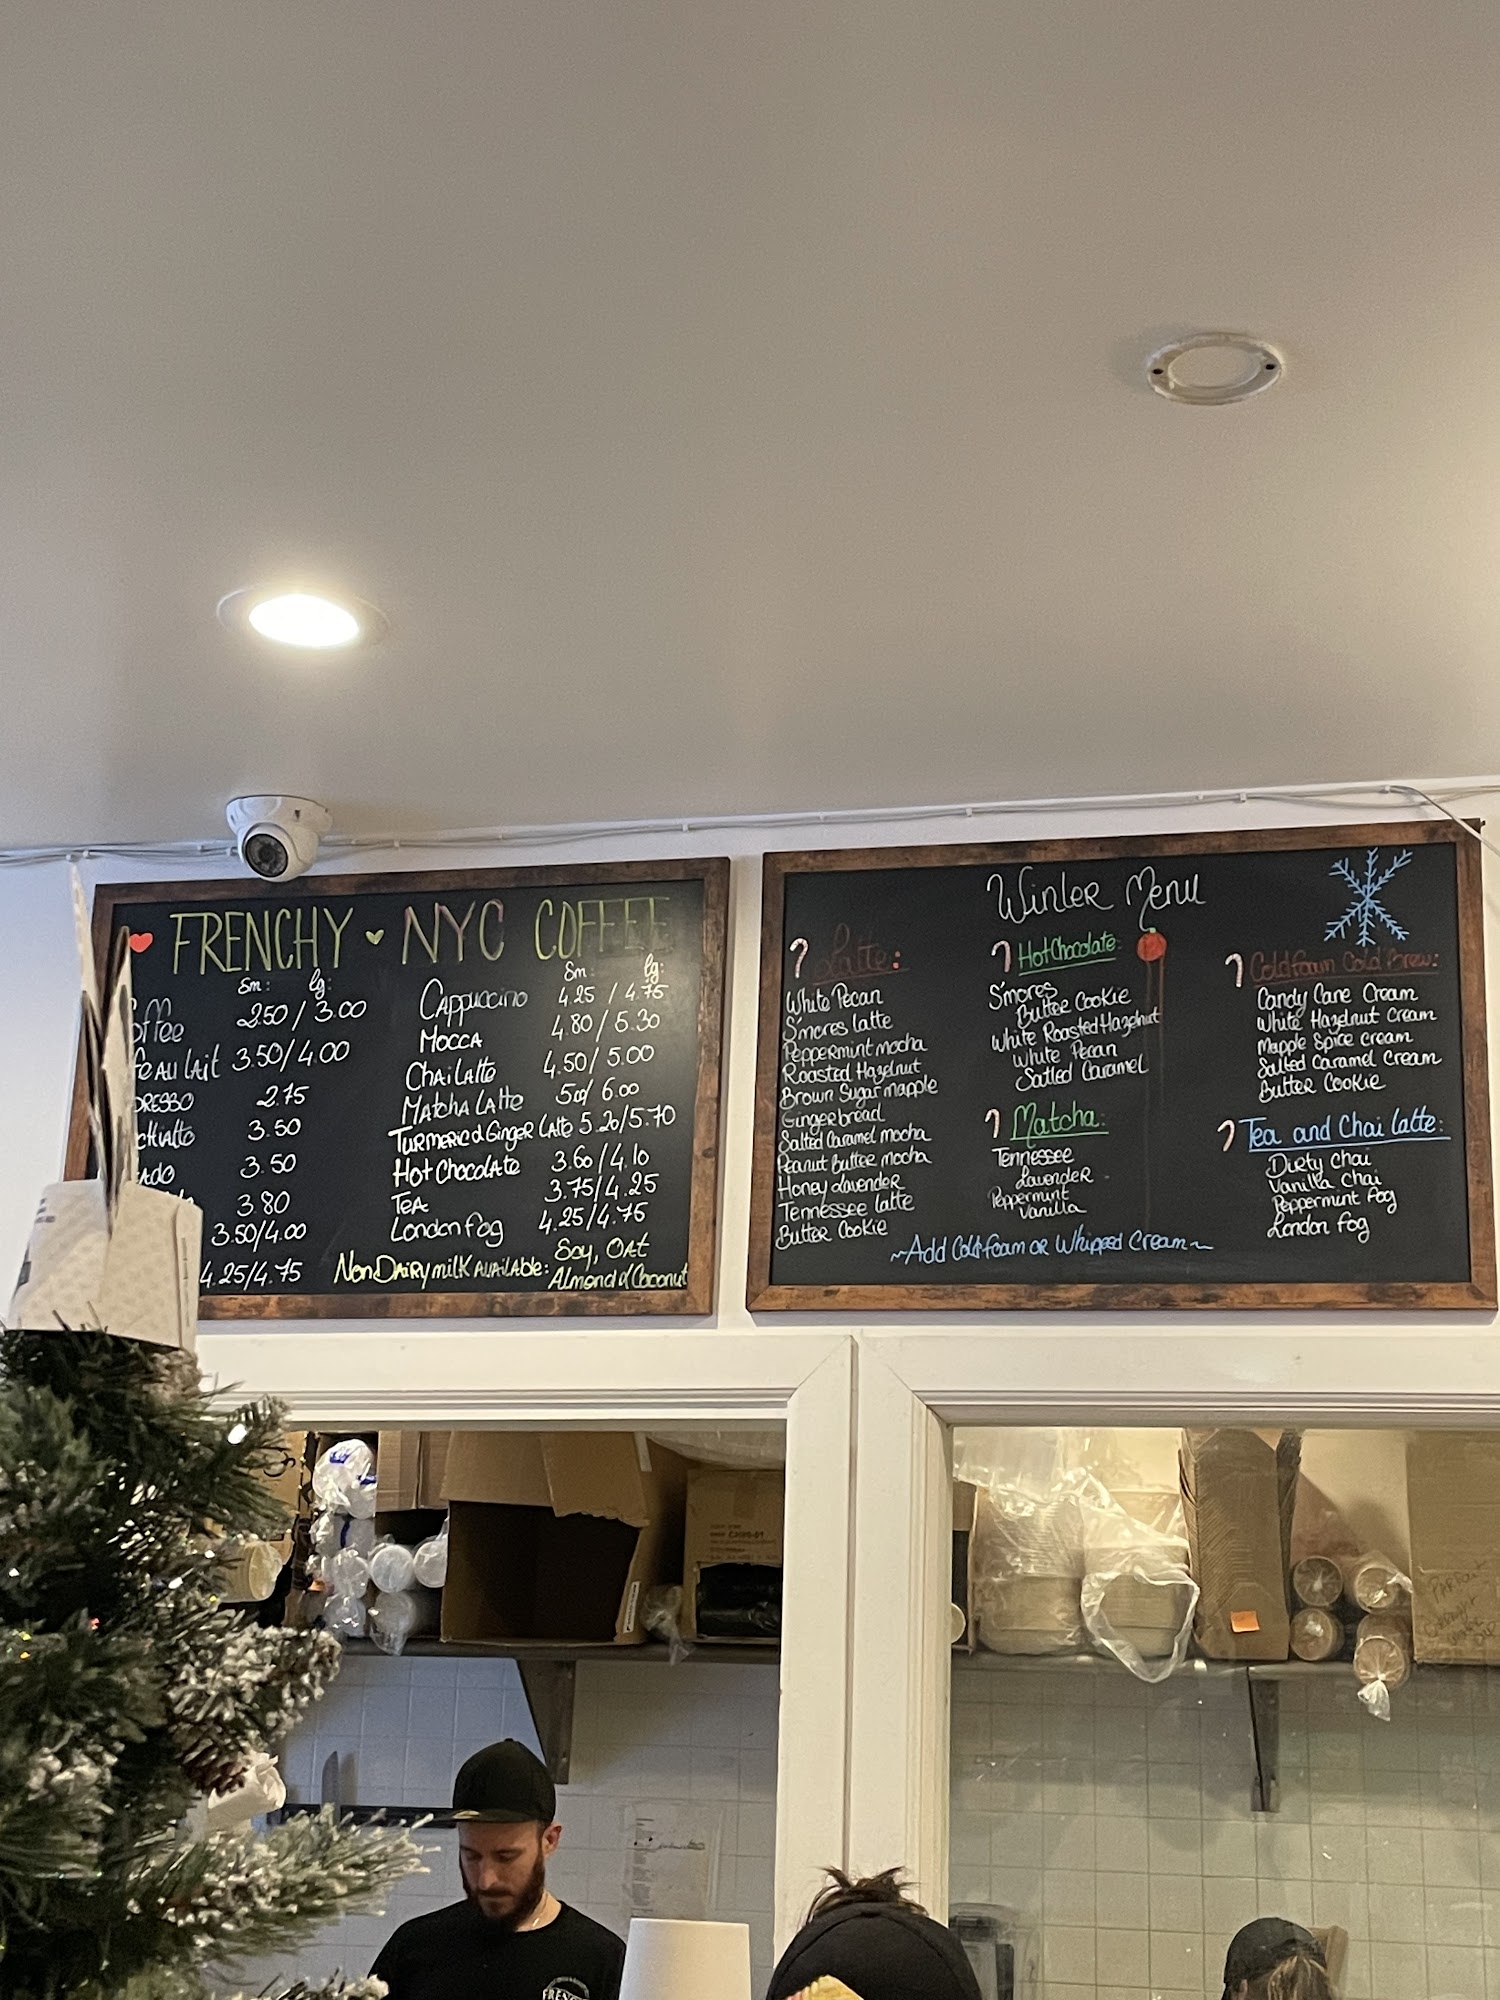 FRENCHY NYC COFFEE
Sm: lg:
offee 2.50 / 3.00
fe Au Lait 3.50/4.00
presso 2.75
chiatto 3.50
ado 3.50
3.80
3.50/4.00
4.25/4.75
Sm: lg:
Cappuccino 4.25 / 4.75
Mocca 4.80 / 5.30
Chai Latte 4.50 / 5.00
Matcha Latte 5.00/ 6.00
Turmeric & Ginger Latte 5.20/5.70
Hot Chocolate 3.60/4.10
Tea 3.75/4.25
London Fog 4.25/4.75
Non Dairy milk Available: Soy, Oat
Almond & Coconut
Winter Menu
Latte:
White Pecan
S'mores latte
Peppermint mocha
Roasted Hazelnut
Brown Sugar mapple
Gingerbread
Salted Caramel mocha
Peanut Butter mocha
Honey Lavender
Tennessee latte
Butter Cookie
Hot Chocolate:
S'mores
Butter Cookie
White Roasted Hazelnut
White Pecan
Satled Caramel
Matcha:
Tennessee
Lavender
Peppermint
Vanilla
Cold foam Cold Brew:
Candy Cane Cream
White Hazelnut Cream
Mapple Spice cream
Salted Caramel Cream
Butter Cookie
Tea and Chai latte:
Dirty Chai
Vanilla Chai
Peppermint Fog
London Fog
~Add Cold foam or Whipped Cream~